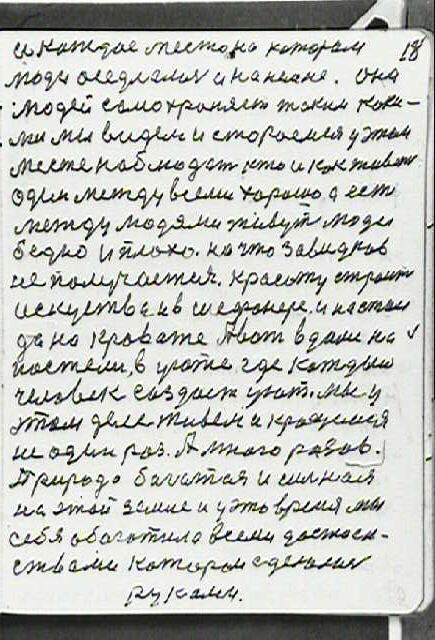 и каждое место на котором 18
люди оседлали и на не не. она
людей само храняет таким каки-
ми мы видем и стораемся у этом
месте наблюдат кто и как живет
один между всеми хорошо, а есть
между людями живут люди
бедно и плохо. на что завидков
не получается. красоту строит
искуства и в шефонере, и на стол
да на кровате
постели, в уюте, где каждый
человек создает уют. мы у
этом деле живем и кро
не один раз. А много разов.
Природа багатая и силная
на этой земле и у это время мы
себя обагатила всеми достоен-
ствами котором сделали
руками.